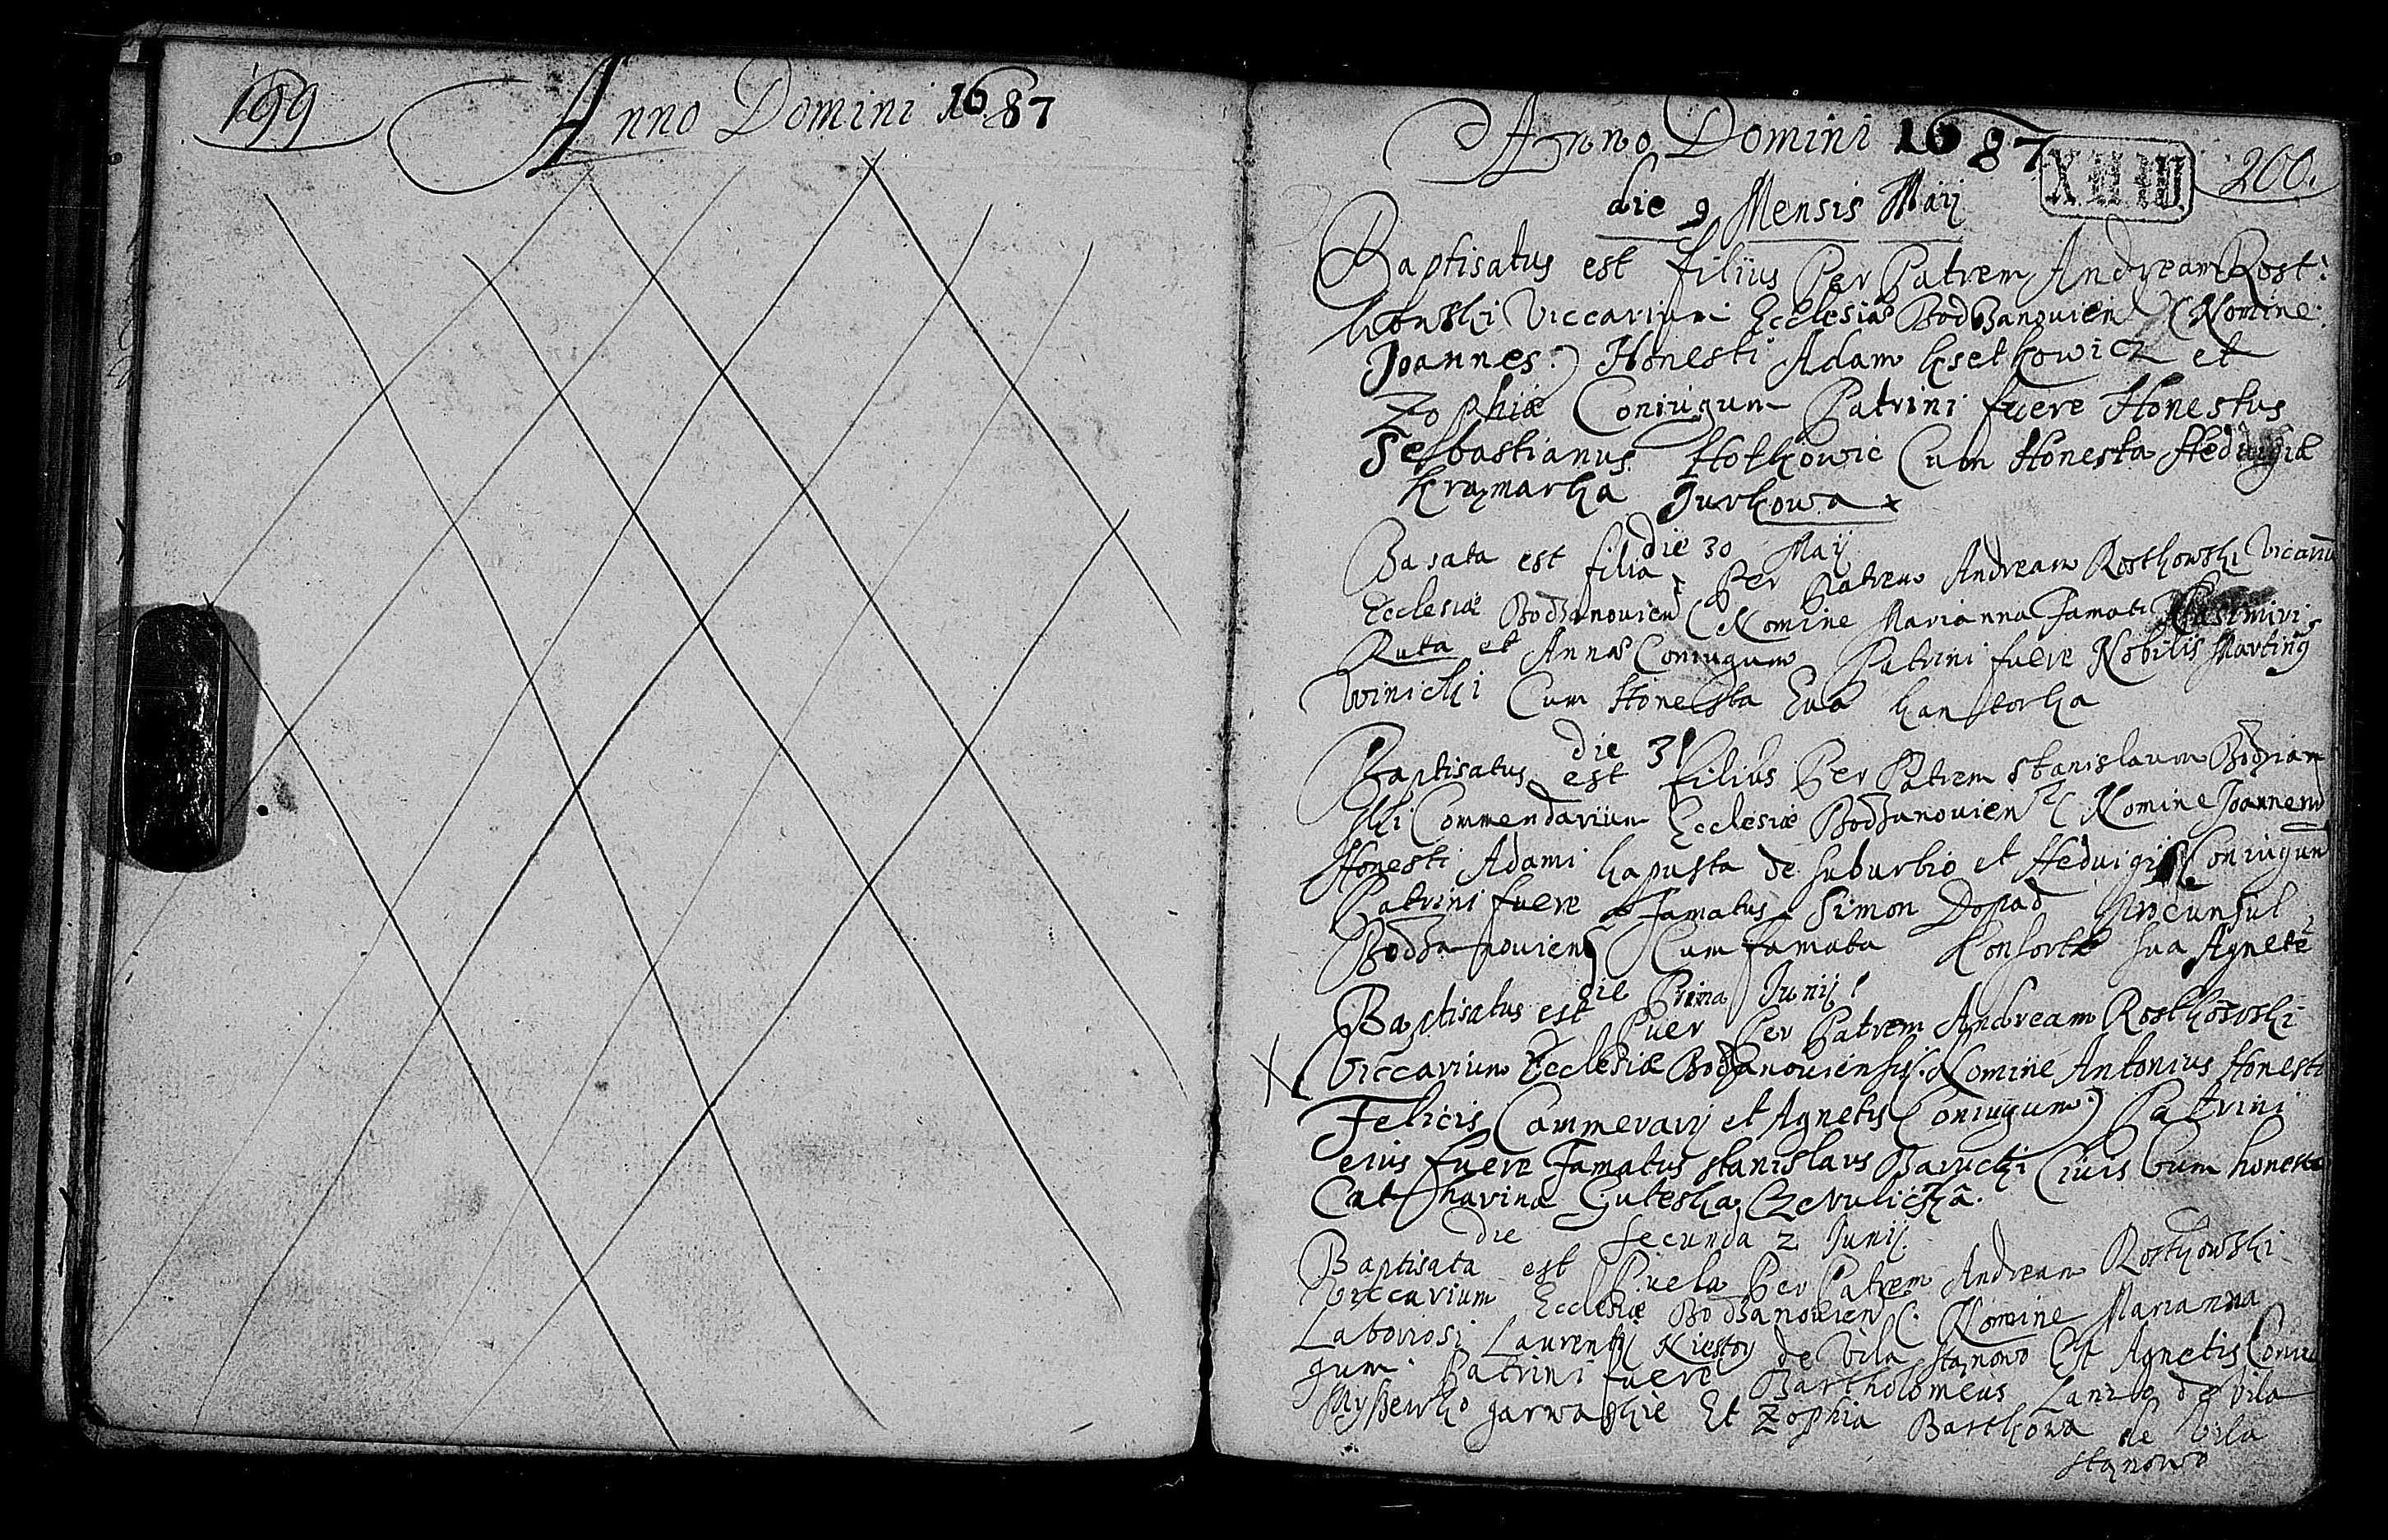 199
Anno Domini 1687
Anno Domini 1687
200.
die 9 Mensis Maij
Baptisatus est filius Per Patrem Andream Rost:
kowski Viccarium Ecclesiæ Bodzanovien (Nomine:
Joannes:) Honesti Adam Ksetkowicz et
Zophiæ Coniugum Patrini fuere Honestus
Sebastianus Hotkowic Cum Honesta Heduigiæ
Krazmarka Jurkowa
die 30 Maij
Basata est filia Per Patrem Andream Rostkowski Vicariu
Ecclesiæ Bodzanovien (Nomine Marianna Famati Casimiri
Ruta et Annæ Coniugum Patrini fuere Nobilis Martinus
Winicki Cum Honesta Eva Kantorka
die 31
Baptisatus est filius Per Patrem Stanislaum Bodzian
ski Commendarium Ecclesiæ Bodzanovien (Nomine Joannem
Honesti Adami Kapusta de suburbio et Heduigis Coniugum
Patrini fuere Famatus Simon Dopad Procunsul
Bodzanovien Cum famata Konsorte sua Agnete
die Prima Junij
Baptisatus est Puer Per Patrem Andream Rostkowski
Viccarium Ecclesiæ Bodzanoviensis (Nomine Antonius Honesti
Felicis Cammerarij et Agnetis Coniugum) Patrini
eius fuere Famatus Stanislaus Barucki Civis Cum honesta
Catharina Guteska
die secunda 2 Junij
Baptisata est Puela Per Patrem Andream Rostkowski
Viccarium Ecclesiæ Bodzanovien (. Nomine Marianna
Laboriosi Laurentij Kiestoy de Vila Stanowo Est Agnetis Coniu
gum. Patrini fuere Bartholomeus de Vila
garwaskie Et Zophia Bartkowa de Vila
Stanowo